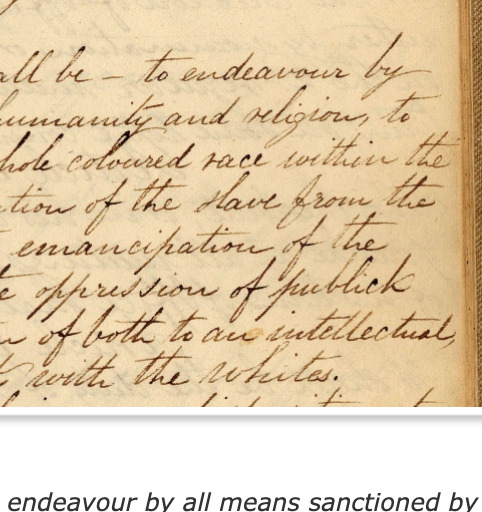 all be – to endeavour by
humanity and religion, to
hole coloured race within the
ation of the slave from the
emancipation of the
e oppression of publick
n of both to an intellectual,
with the whites.
endeavour by all means sanctioned by